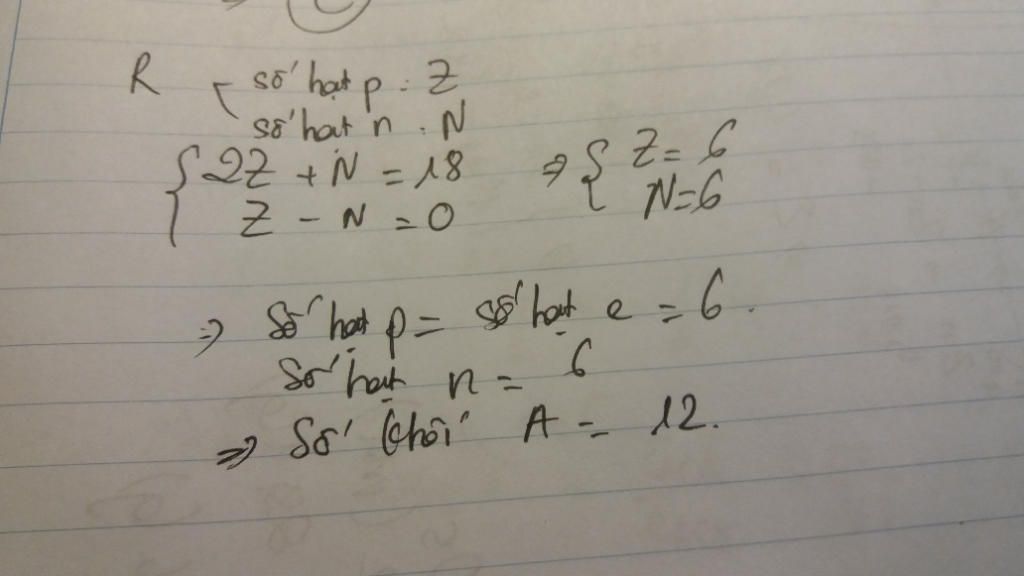 R { số hạt p : Z
số hạt n : N
{ 2Z + N = 18 => { Z = 6
Z - N = 0 N = 6
=> Số hạt p = số hạt e = 6.
Số hạt n = 6
=> Số khối A = 12.